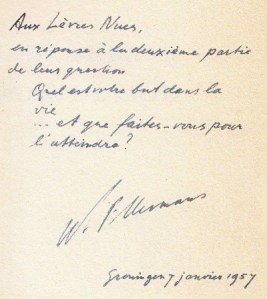 Aux Lèvres Nues,
en réponse à la deuxième partie
de leur question
Quel est votre but dans la
vie
... et que faites-vous pour
l'atteindre?
W. F. Hermans
Groningen 7 janvier 1957